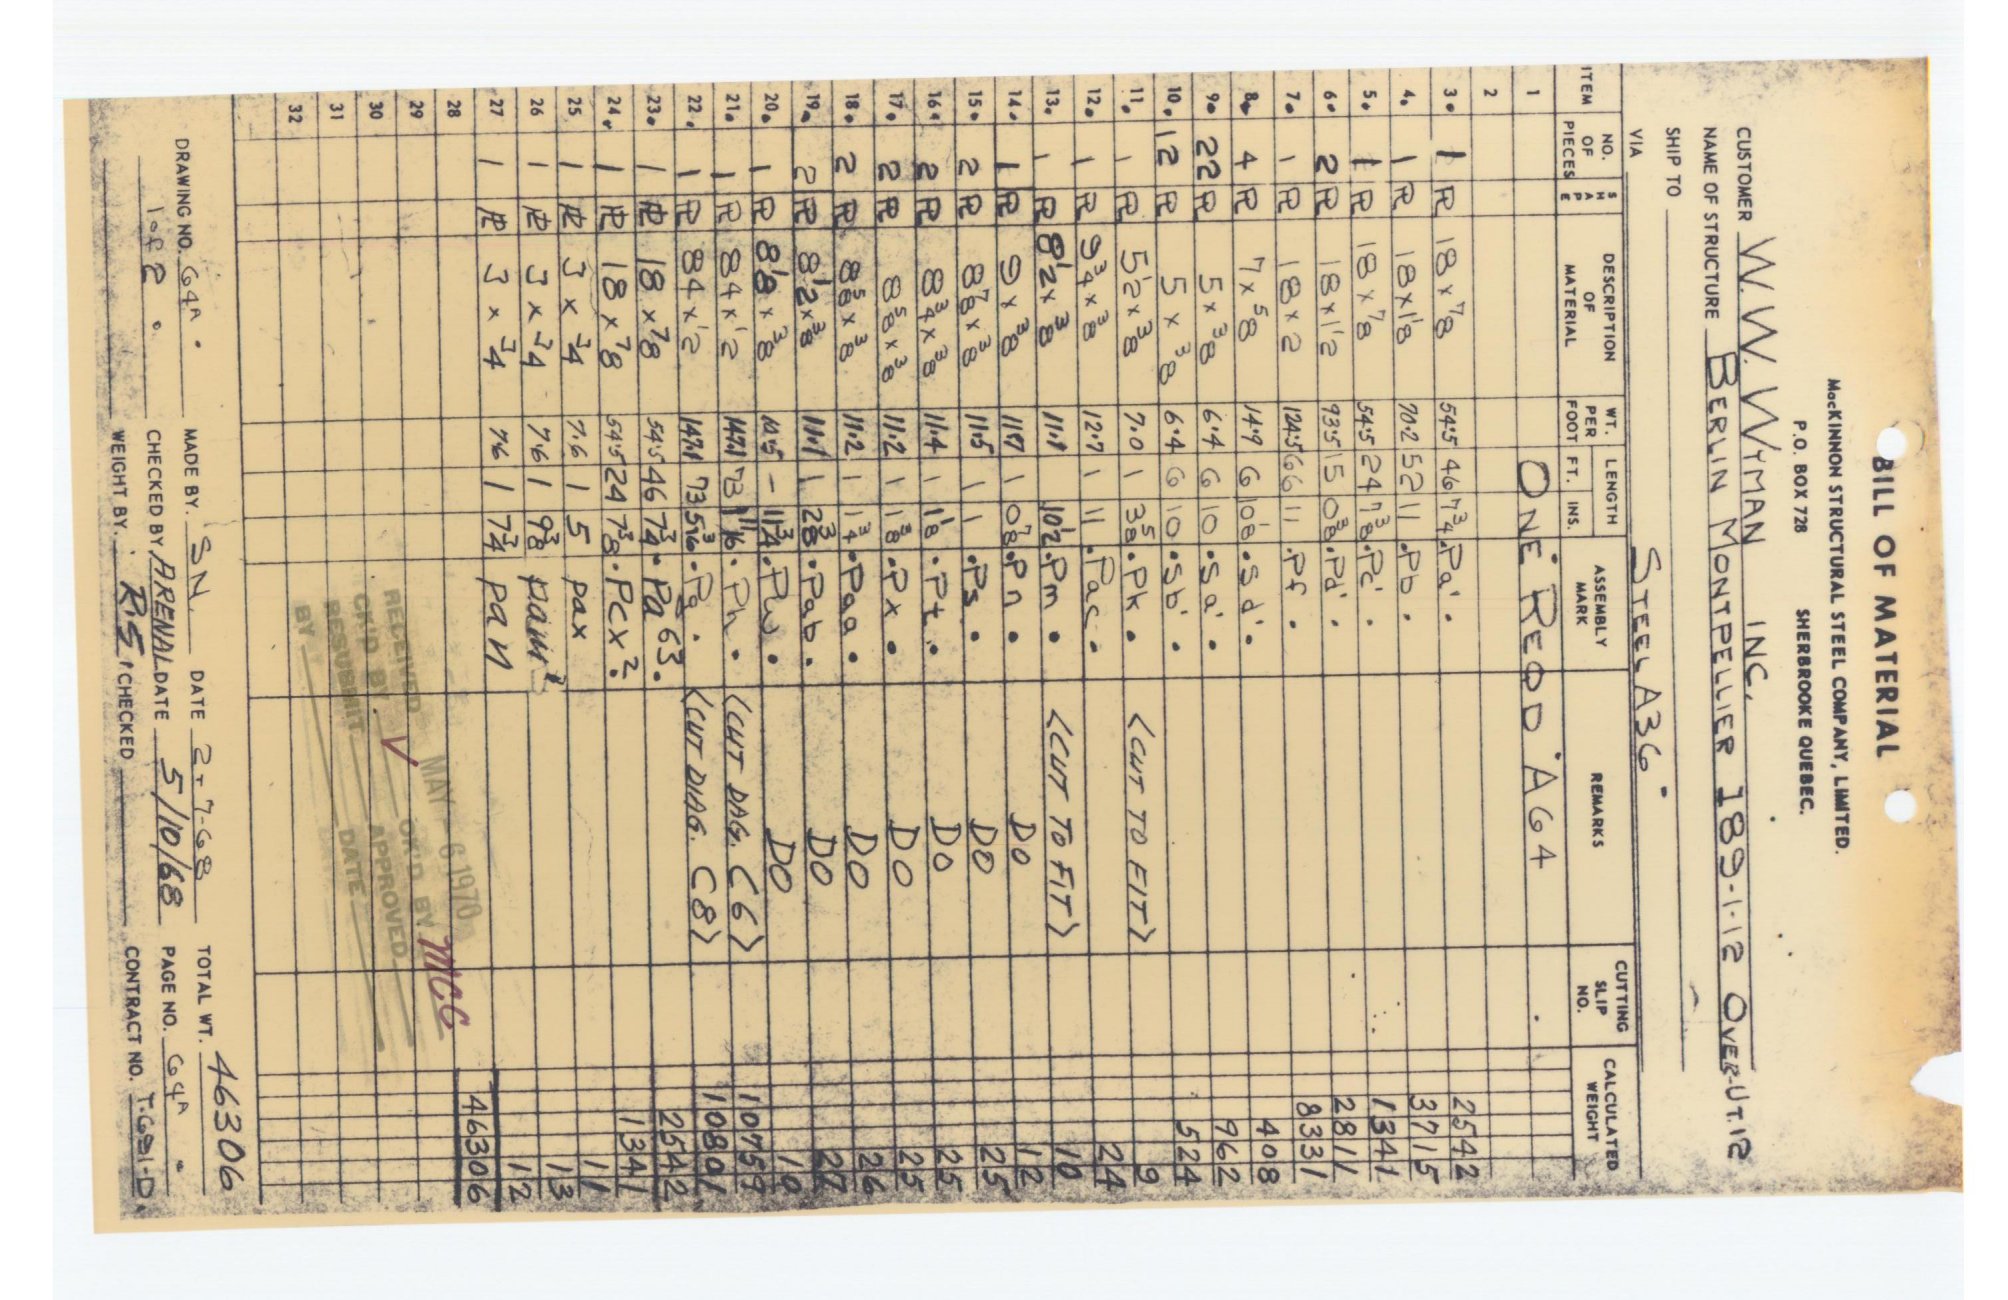 BILL OF MATERIAL
MacKINNON STRUCTURAL STEEL COMPANY, LIMITED.
P.O. BOX 728 SHERBROOKE QUEBEC.
CUSTOMER W. W. WYMAN INC.
NAME OF STRUCTURE BERLIN MONTPELLIER 189-1-12 OVER-UT.12
SHIP TO
VIA STEEL A36
ITEM NO. OF PIECES SHAPE DESCRIPTION OF MATERIAL WT. PER FOOT LENGTH FT. INS. ASSEMBLY MARK REMARKS CUTTING SLIP NO. CALCULATED WEIGHT
1 ONE REQD AG4
2
3. 1 PL 18 x 7/8 54.5 46 7 3/4 Pa'. 2542
4. 1 PL 18 x 1 1/8 70.2 52 11 Pb. 3715
5. 1 PL 18 x 7/8 54.5 24 7 3/8 Pc'. 1341
6. 2 PL 18 x 1 1/2 93.5 15 0 3/8 Pd'. 2811
7. 1 PL 18 x 2 124.5 66 11 Pf. 8331
8. 4 PL 7 x 5/8 14.9 6 10 1/8 Sd'. 408
9. 22 PL 5 x 3/8 6.4 6 10 Sa'. 962
10. 12 PL 5 x 3/8 6.4 6 10 Sb'. 524
11. 1 PL 5 1/2 x 3/8 7.0 1 3 5/8 Pk. <CUT TO FIT> 9
12. 1 PL 9 3/4 x 3/8 12.7 1 11 Pac. 24
13. 1 PL 8 1/2 x 3/8 11.1 10 1/2 Pm. <CUT TO FIT> 10
14. 1 PL 9 x 3/8 11.7 1 0 7/8 Pn. DO 12
15. 2 PL 8 7/8 x 3/8 11.5 1 1 Ps. DO 25
16. 2 PL 8 3/4 x 3/8 11.4 1 1 1/8 Pt. DO 25
17. 2 PL 8 5/8 x 3/8 11.2 1 1 3/8 Px. DO 25
18. 2 PL 8 5/8 x 3/8 11.2 1 1 3/4 Paa. DO 26
19. 2 PL 8 1/2 x 3/8 11.1 1 2 3/8 Pab. DO 27
20. 1 PL 8 1/8 x 3/8 10.5 - 11 3/4 Pw. DO 10
21. 1 PL 84 x 1/2 147.1 73 1 11/16 Ph. <CUT DAG. C6> 10759
22. 1 PL 84 x 1/2 147.1 73 5 3/16 Pg. <CUT DIAG. C8> 10801
23. 1 PL 18 x 7/8 54.5 46 7 3/4 Pa 63. 2542
24. 1 PL 18 x 7/8 54.5 24 7 3/8 Pcx2. 1341
25 1 PL 3 x 3/4 7.6 1 5 pax 11
26 1 PL 3 x 3/4 7.6 1 9 3/8 13
27 1 PL 3 x 3/4 7.6 1 7 3/4 pan 12
28 46306
29
30
31
32
RECEIVED MAY - 6 1970
CK'D BY OK'D BY MCG
RESUBMIT APPROVED
BY DATE
DRAWING NO. G4A. MADE BY. SN. DATE 2-7-68 TOTAL WT. 46306
1 of 2 CHECKED BY ARENAL DATE 5/10/68 PAGE NO. G4A
WEIGHT BY. R.S. CHECKED CONTRACT NO. T-681-D.